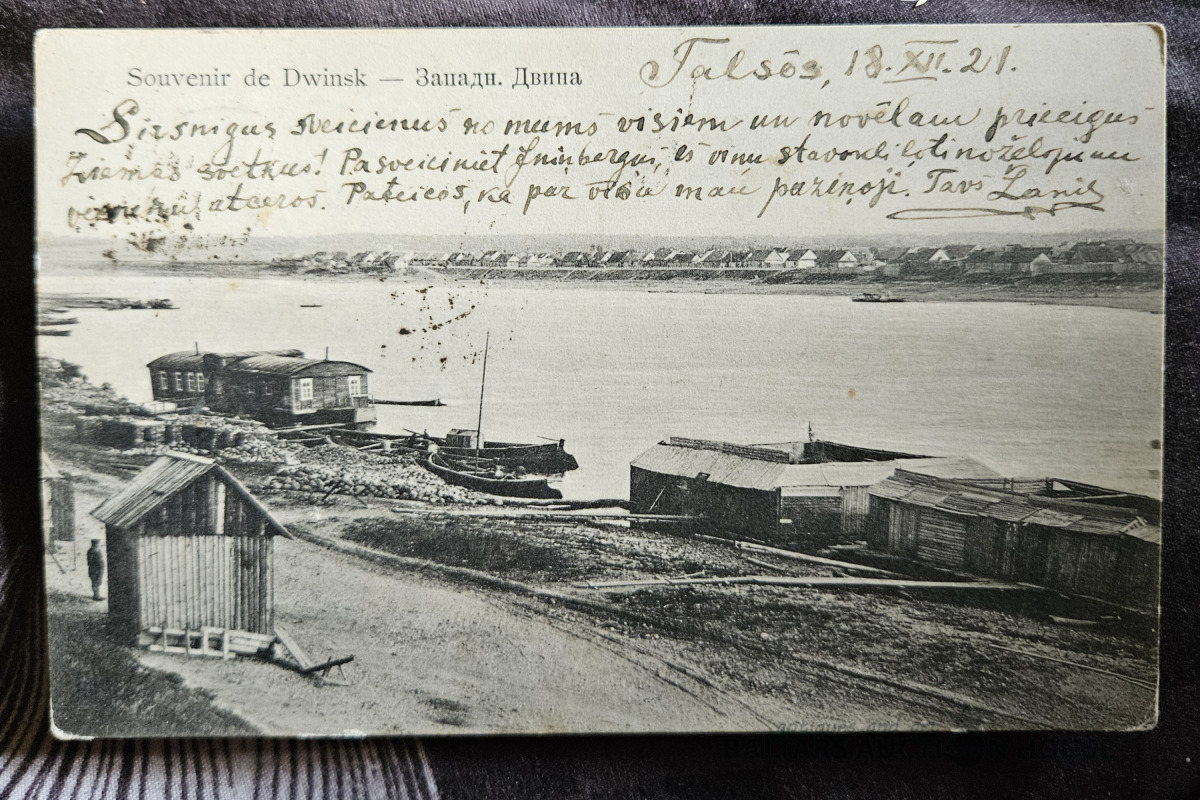 Souvenir de Dwinsk — Западн. Двина
Talsōs, 18.XII.21.
Sirsnigus sveicienus no mums visiem un novēlam priecigus
Ziemas svetkus! Pasveiciniet Ininbergus, eš vinu stavokli loti nožēloju un
atceros. Pateicos, ka par visu man pazinoji. Tavs Žanis